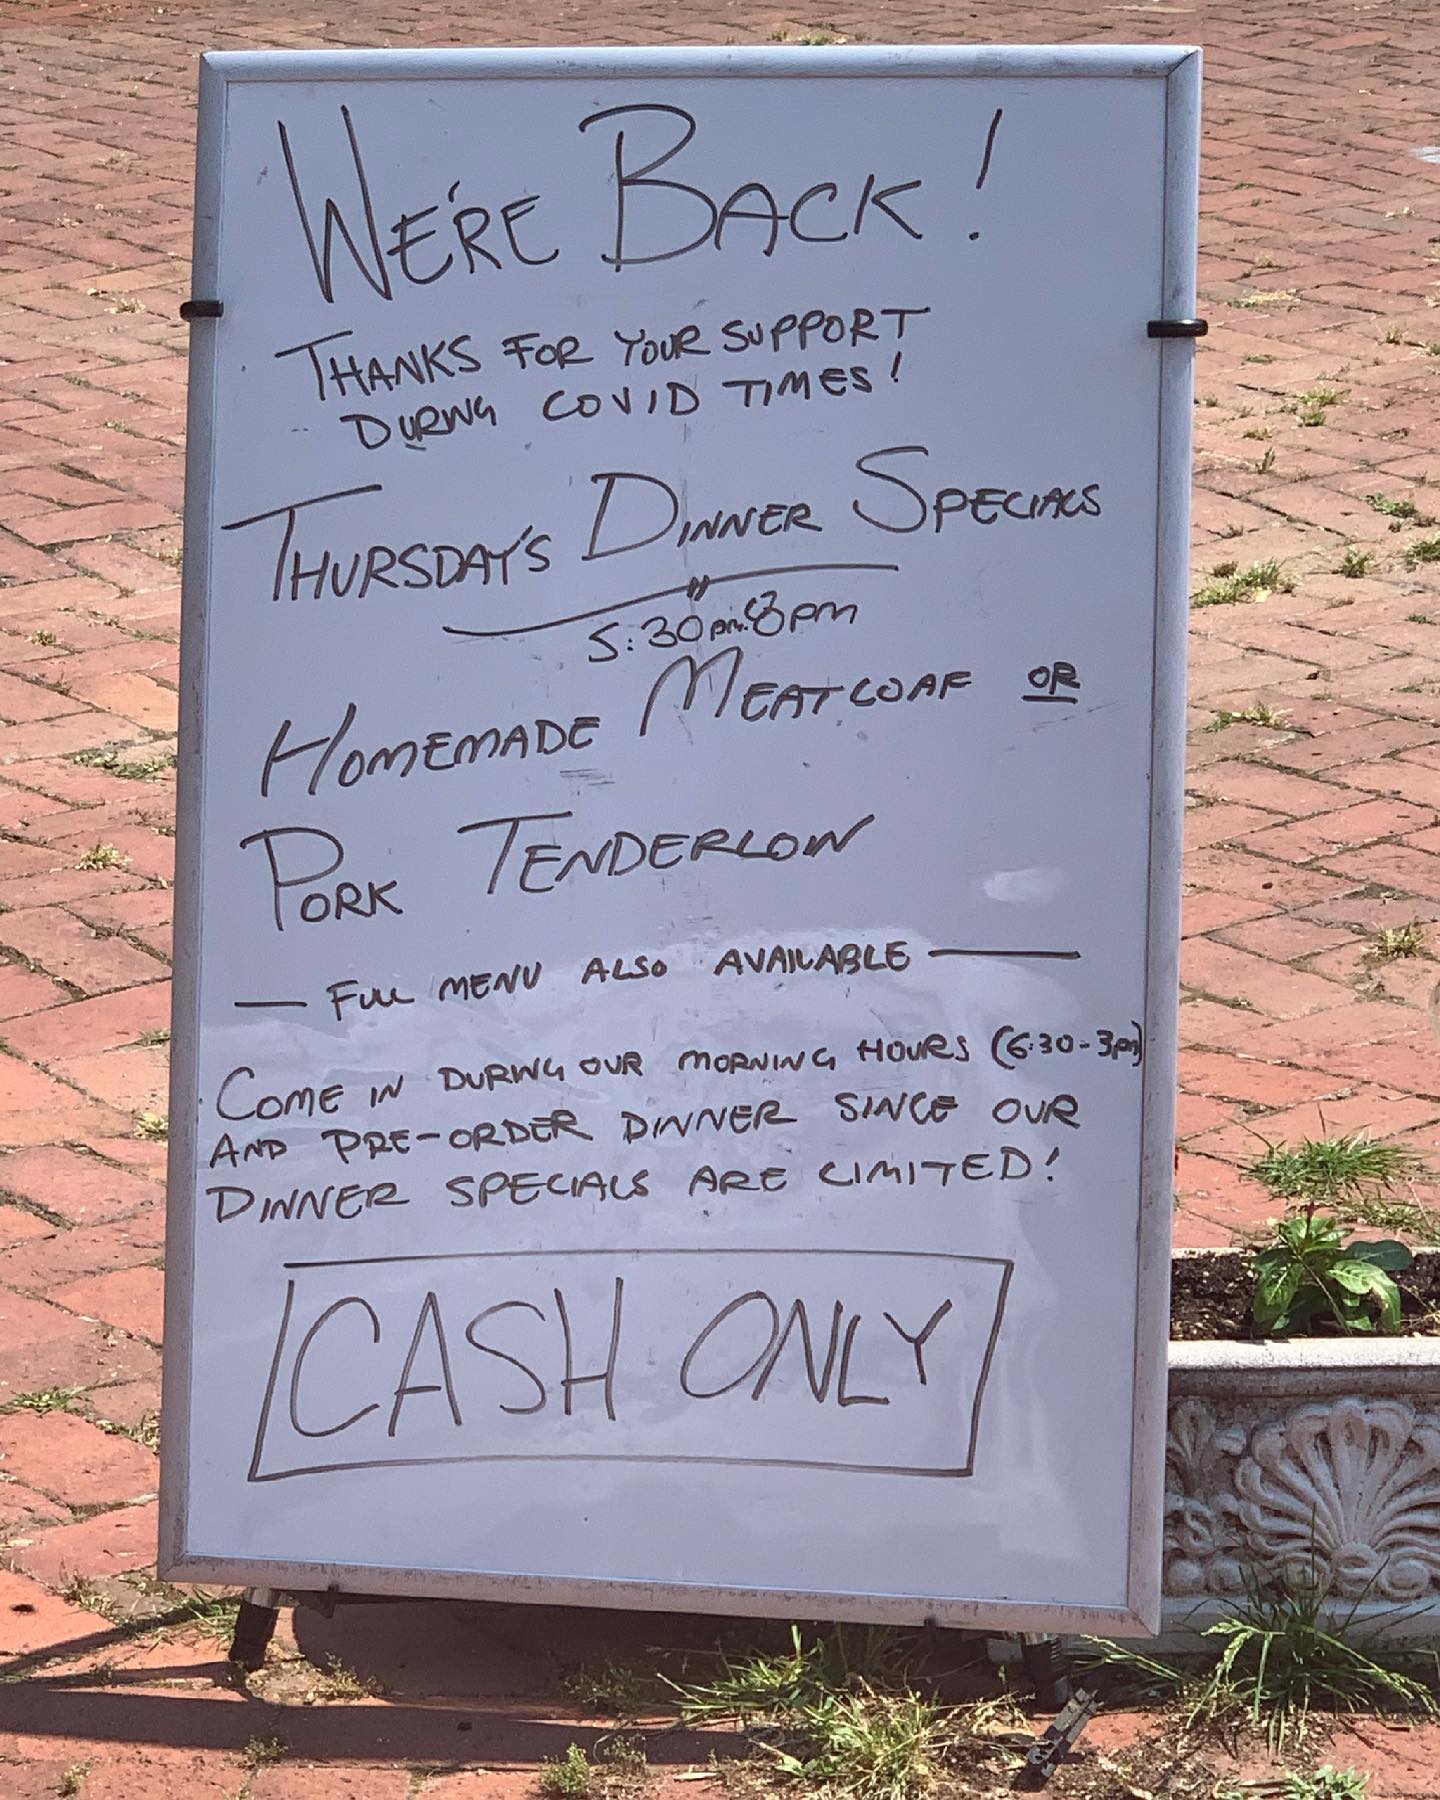 WE'RE BACK!
THANKS FOR YOUR SUPPORT
DURING COVID TIMES!
THURSDAY'S DINNER SPECIALS
5:30pm-8pm
HOMEMADE MEATLOAF OR
PORK TENDERLOIN
— FULL MENU ALSO AVAILABLE —
COME IN DURING OUR MORNING HOURS (6:30-3pm)
AND PRE-ORDER DINNER SINCE OUR
DINNER SPECIALS ARE LIMITED!
CASH ONLY